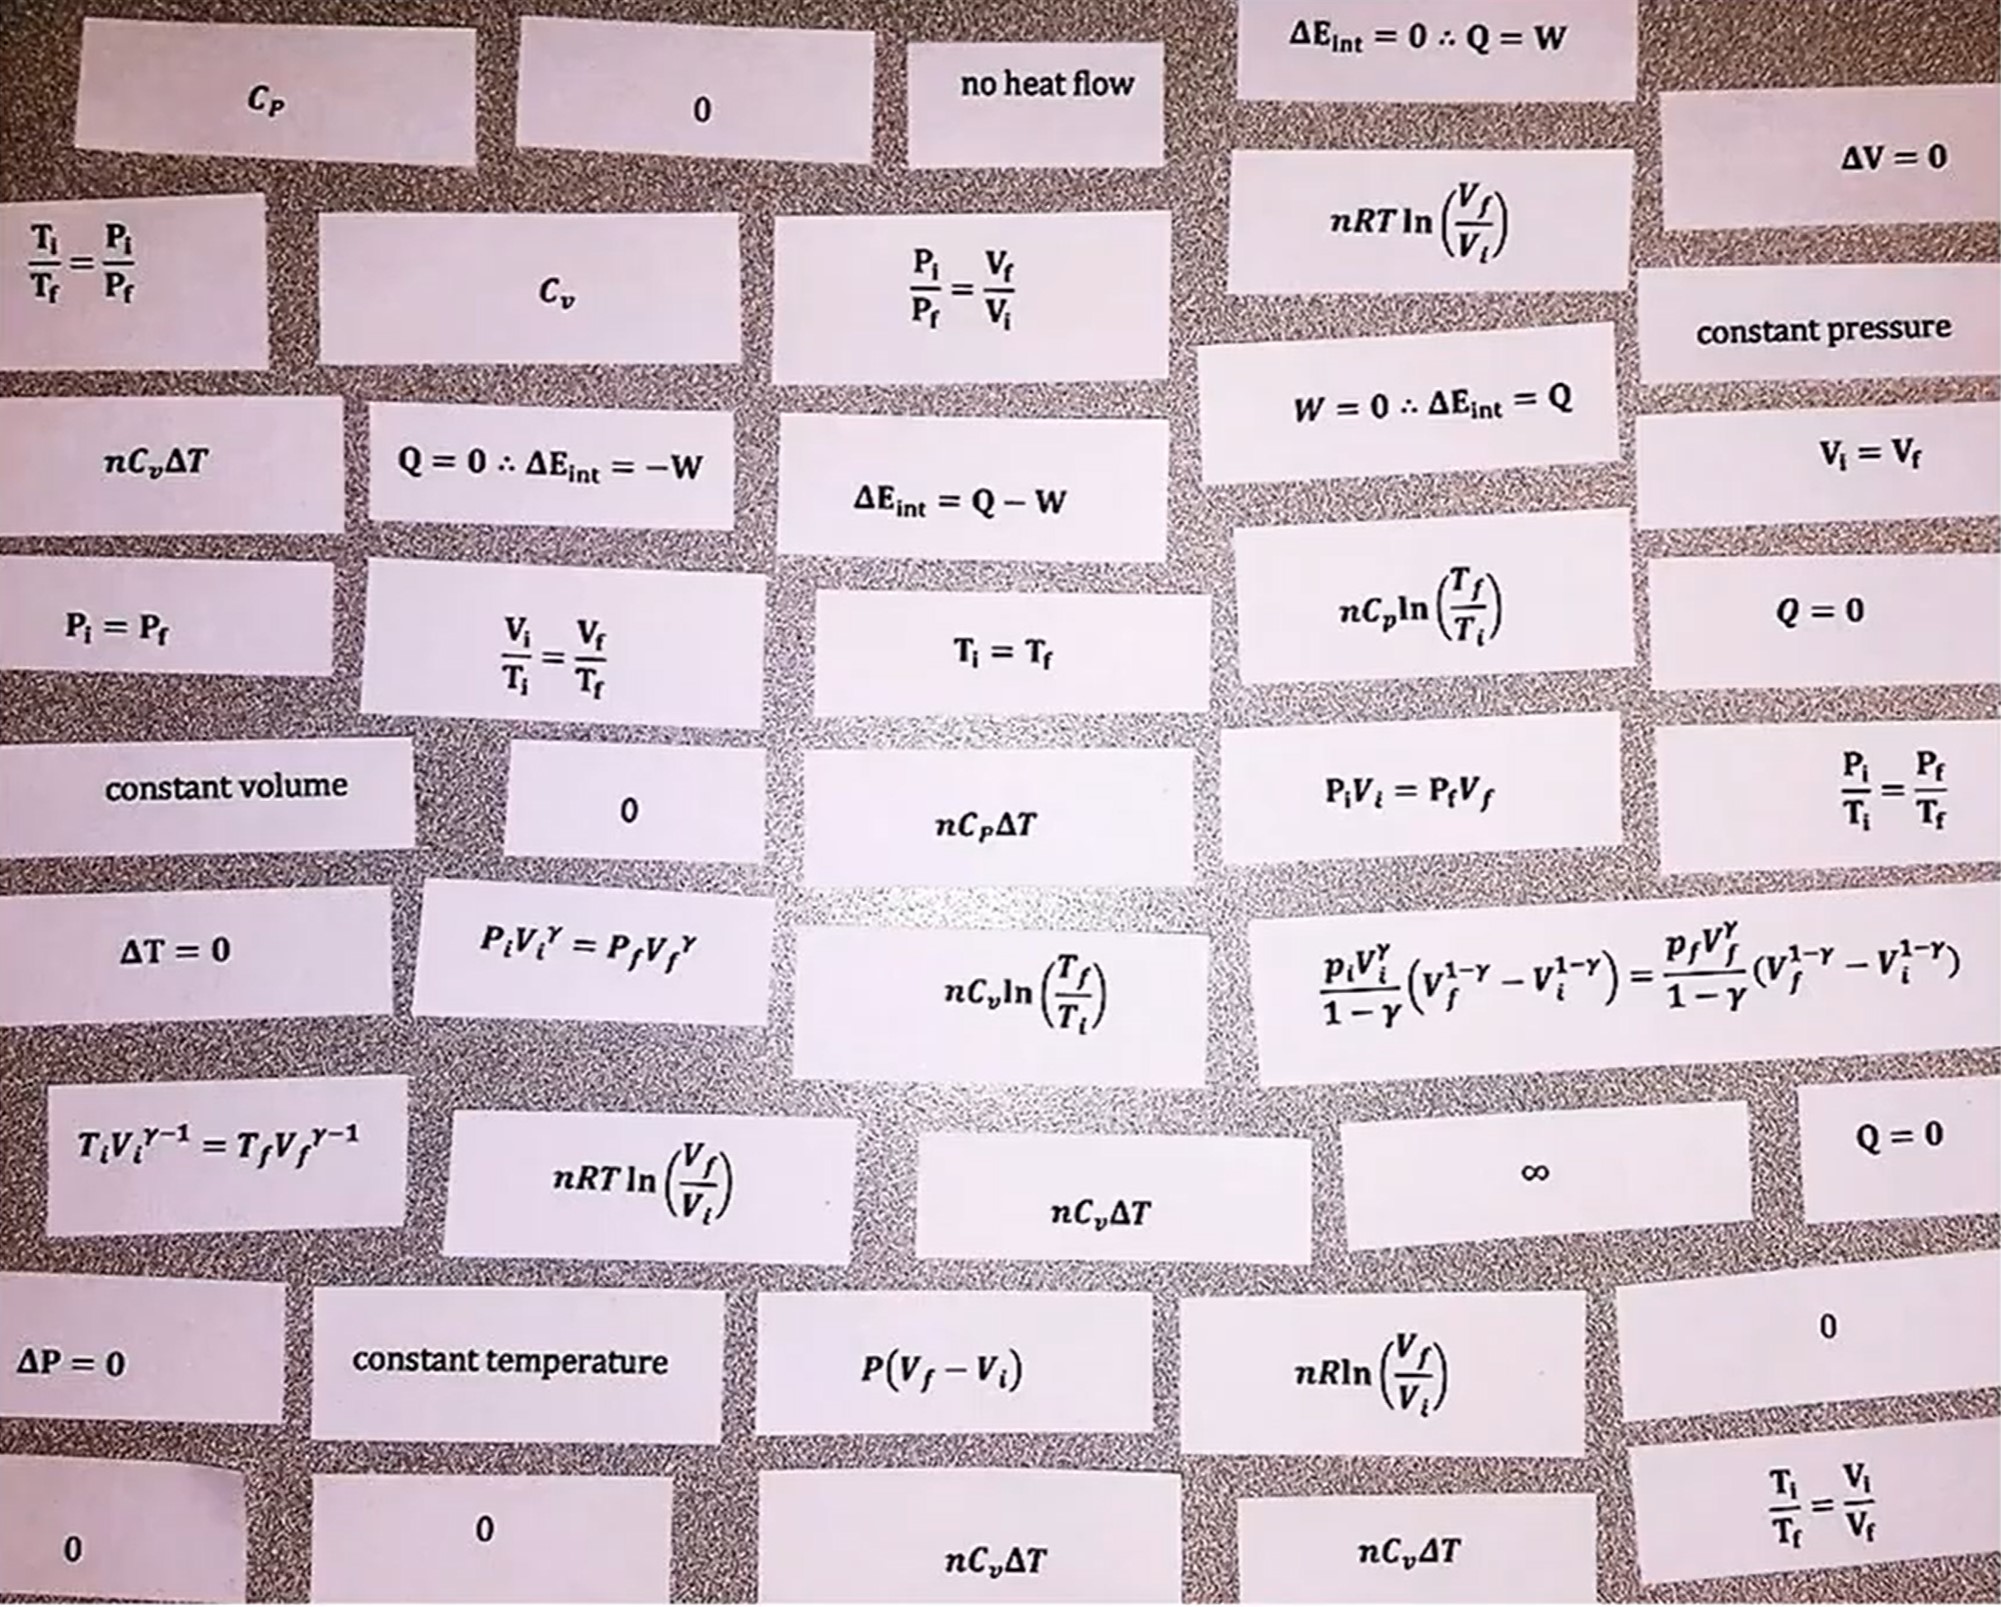 C_P
0
no heat flow
ΔE_int = 0 ∴ Q = W
ΔV = 0
T_i/T_f = P_i/P_f
C_v
P_i/P_f = V_f/V_i
nRT ln(V_f/V_i)
constant pressure
nC_vΔT
Q = 0 ∴ ΔE_int = −W
ΔE_int = Q − W
W = 0 ∴ ΔE_int = Q
V_i = V_f
P_i = P_f
V_i/T_i = V_f/T_f
T_i = T_f
nC_p ln(T_f/T_i)
Q = 0
constant volume
0
nC_PΔT
P_iV_i = P_fV_f
P_i/T_i = P_f/T_f
ΔT = 0
P_iV_i^γ = P_fV_f^γ
nC_v ln(T_f/T_i)
p_iV_i^γ/(1 − γ) (V_f^(1−γ) − V_i^(1−γ)) = p_fV_f^γ/(1 − γ) (V_f^(1−γ) − V_i^(1−γ))
T_iV_i^(γ−1) = T_fV_f^(γ−1)
nRT ln(V_f/V_i)
nC_vΔT
∞
Q = 0
ΔP = 0
constant temperature
P(V_f − V_i)
nR ln(V_f/V_i)
0
0
0
nC_vΔT
nC_vΔT
T_i/T_f = V_i/V_f